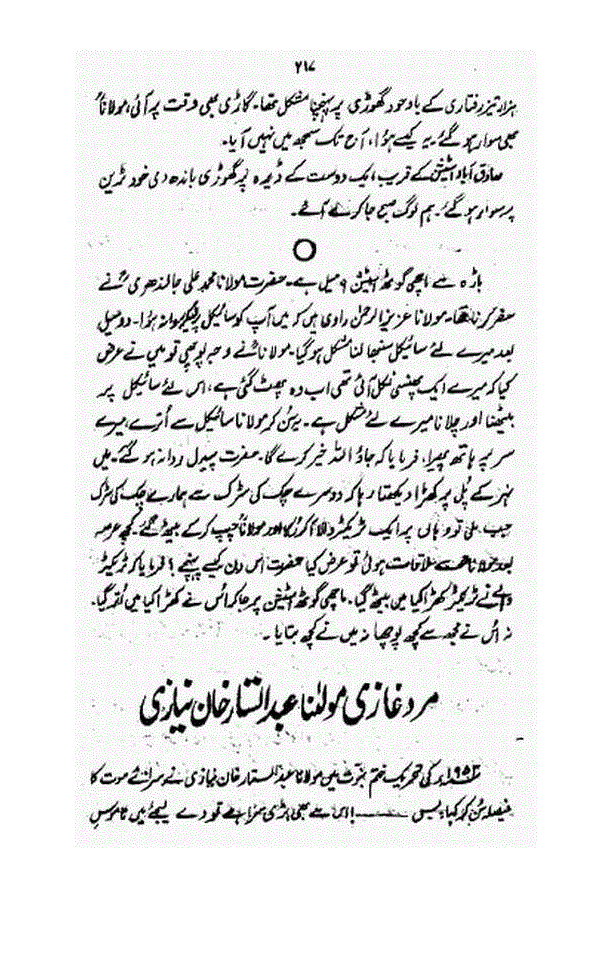 ۲۱۷
ہزار تیز رفتاری کے باوجود گھوڑی پر پہنچنا مشکل تھا۔ گاڑی بھی وقت پر آئی، مولاناؒ
بھی سوار ہو گئے۔ یہ کیسے ہوا، آج تک سمجھ میں نہیں آیا۔
صادق آباد اسٹیشن کے قریب ایک دوست کے ڈیرہ پر گھوڑی باندھ دی خود ٹرین
پر سوار ہو گئے۔ ہم لوگ صبح جا کر لے آئے۔
باڑہ سے ماچھی گوٹھ اسٹیشن ۹ میل ہے۔ حضرت مولانا محمد علی جالندھریؒ نے
سفر کرنا تھا۔ مولانا عزیز الرحمٰن راوی ہیں کہ میں آپ کو سائیکل پر لیکر روانہ ہوا۔ دو میل
بعد میرے لئے سائیکل سنبھالنا مشکل ہو گیا۔ مولاناؒ نے وجہ پوچھی تو میں نے عرض
کیا کہ میرے ایک پھنسی نکل آئی تھی اب وہ پھٹ گئی ہے، اس لئے سائیکل پر
بیٹھنا اور چلانا میرے لئے مشکل ہے۔ یہ سن کر مولانا سائیکل سے اُترے، میرے
سر پہ ہاتھ پھیرا، فرمایا کہ جاؤ اللہ خیر کرے گا۔ حضرت پیدل روانہ ہو گئے۔ میں
نہر کے پل پر کھڑا دیکھتا رہا کہ دوسرے چک کی سڑک سے ہمارے چک کی سڑک
جب ملی تو وہاں پر ایک ٹریکٹر والا آ کر رُکا اور مولانا جمپ کر کے بیٹھ گئے۔ کچھ عرصہ
بعد مولاناؒ سے ملاقات ہوئی تو عرض کیا حضرت اس دن کیسے پہنچے؟ فرمایا کہ ٹریکٹر
والے نے ٹریکٹر کھڑا کیا میں بیٹھ گیا۔ ماچھی گوٹھ اسٹیشن پر جا کر اُس نے کھڑا کیا میں اُتر گیا۔
نہ اُس نے مجھ سے کچھ پوچھا نہ میں نے کچھ بتایا۔
مرد غازی مولانا عبدالستار خان نیازی
۱۹۵۳ء کی تحریک ختم نبوت میں مولانا عبدالستار خان نیازی نے سزائے موت کا
فیصلہ سن کر کہا، بس ——— !! اس سے بھی بڑی سزا ہے تو دے لیجئے میں ناموسِ